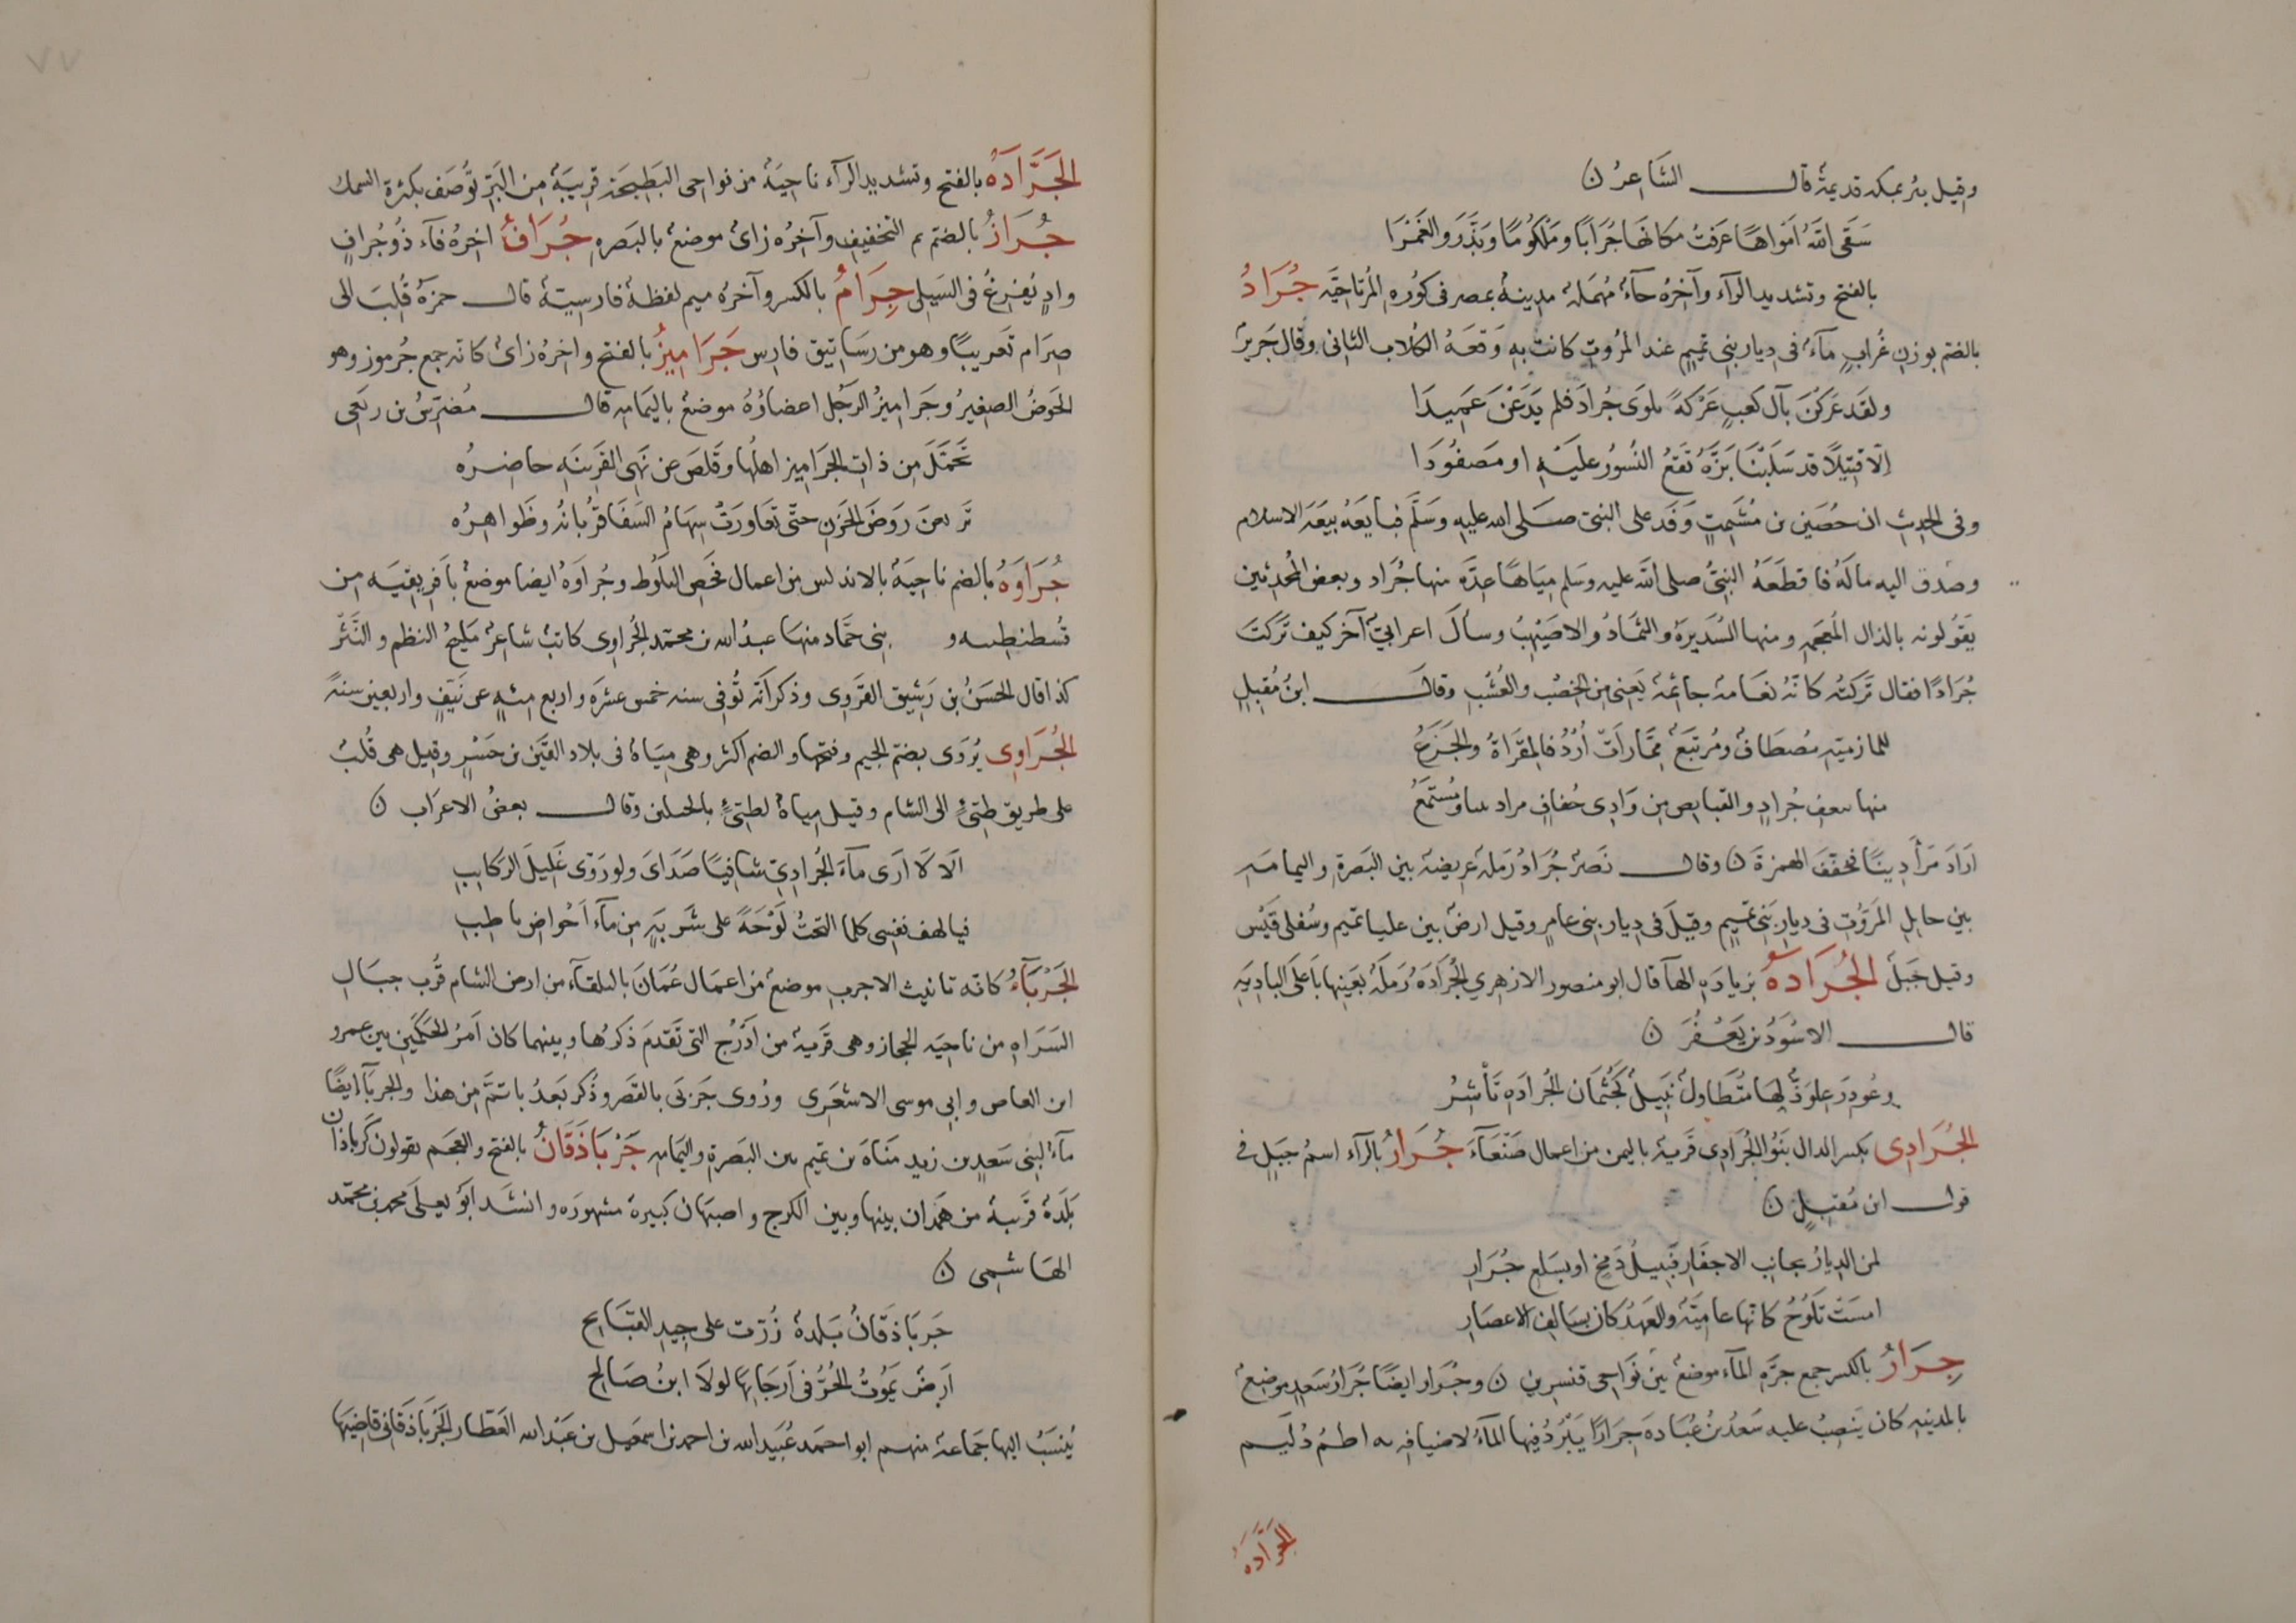 وقيل بئر بمكه قديمة قال الشَاعِرُ ن
سَقَى اللهُ امَواهًا عَرَفتُ مكانَهَا جُرَابًا ومَلْكُومًا وبَذَّرَ والغَمْرَا
بالفتح وتشديد الرآء وآخرُه حآءٌ مُهمَلة مدينةٌ بمصر فى كوُره المُرتاحيَّه جُرَادُ
بالضم بوزنِ غُرابٍ مآءٌ فى ديار بنى تميمٍ عند المرُوت كانت بهِ وَقعَهُ الكُلاب الثانى وقال جَريرٌ
ولقد عَركنَ بآل كعبٍ عَرْكةً بلوَى جُرادَ فلم يَدَعْنَ عَميدَا
اِلا قتيِلًا قد سَلَبْنَا بَزَّهُ تَقعُ النُسورُ عليَهِ او مصَفوُدَا
وفى الحديث ان حُصَين بن مُشَمِتٍ وَفَد على النبى صَلى الله عليهِ وسَلّم فبايَعَهُ بيعَةَ الاسلام
وصَدق اليه مالَهُ فاقطعَهُ النبىُّ صلى الله عليه وسَلم ميَاهًا عِدَّه منها جُرَاد وبعض المُحدثين
يَقوُلونه بالذال المُعجمه ومنها السُدَيرَهُ والثمَادُ والاصَيْهبُ وسأل اعرابىٌّ آخر كيف تَركتَ
جُرَادًا فقال تَركتُه كانّهُ نعَامةٌ جاثمةٌ يَعنى من الخصْب والعُشب وقال ابنُ مُقبِلٍ
للمازنيّهِ مُصطَافٌ ومُرتَبَعٌ مِمَّا رأتْ اُرُدُ فالمقرَاةُ والجَزَعُ
منها بنعفِ جُرادٍ والقبايِض من وَادِى حُفافٍ مرا دنيا ومُستَمَعُ
ارَادَ مَرأَ دينًا فخفَّفَ الهمزةَ ن وقال نَصرٌ جُرَادُ رَملةٌ عريضة بين البَصرَةِ واليمامَهِ
بين حايِلِ المَرّوُت فى ديارِ بَنى تميمٍ وقيلَ فى ديار بنى عامرٍ وقيل ارضٌ بين عليا تميم وسُفلى قيَس
وقيل جَبلٌ الجُرَادَهُ بزيادَه الهآ قال ابو منصور الازهرى الجُرَادَهُ رَملَهٌ بعَينِها باَعلَى البادِيَهِ
قال الاسوَدُ بن يَعفُرَ ن
وغُودِرَ عِلوَدٌّ لها مُتَطاولٌ نَبيلٌ كجُثمان الجُرادَهِ نَأْشِرُ
الجُرَادِى بكسر الدال بَنَوا الجُرَادِى قَريةٌ باليمن من اعمال صَنْعَآءَ جُرَارُ بالرآء اسمُ جبَلٍ فى
قول ابن مُقبِلٍ ن
لمن الديارُ بجانِب الاحفَارِ فبِتيلُ دَمخٍ او بسَلعِ جُرَارِ
امسَتْ تلَوُحُ كانّها عاميّةٌ والعَهدُ كان بسَالِفِ الاعصَارِ
جِرَارُ بالكسر جمع جرَّهِ المآء موضعٌ مِن نَواحى قنسرين ن وجُرار ايضًا جُرَارُ سَعدٍ موضِعٌ
بالمدينهِ كان يَنصِبُ عليه سَعدُ بنُ عُبَادهَ جِرَارًا يَبْردُ فيها المآءُ لاضيافِه به اطمُ دُلَيم
الجَرَّادَهُ
الجَرَّادَهُ بالفتح وتشديد الرآء ناحِيَةٌ من نواحى البَطِيحَة قريبَةٌ مِن البَرِّ تُوصَف بكثرة السمك
جُرَازُ بالضم ثم التخفيفِ وآخِرُه زاىٌ موضعٌ بالبَصره جُرَافٌ اخرُهُ فآء ذُو جُرافٍ
وادٍ يُفِرغُ فى السَيلى جِرَامُ بالكسر وآخرُه ميم لفظهٌ فارسيّة قال حمزةُ قُلِبَ الى
صِرَام تَعريبًا وهو من رسَاتيق فارس جَرَامِيزُ بالفتح واخرُهُ زاىٌ كانه جمع جُرموز وهو
الحَوضُ الصغيرُ وجَرَاميزُ الرجُل اعضاؤهُ موضعٌ باليمَامه قال مُضرِّسُ بن ربَعى
تحَمّلَ مِن ذاتِ الجَرَاميز اهلُها وقَلصَ عن نِهَى القَرِينَهِ حاضِرُه
تَربعنَ رَوضَ الحَزنِ حتّى تعَاورَتْ سِهَامُ السَفَا قُرْيانُه وظَواهِرُه
جُرَاوَهُ بالضم ناحِيَةٌ بالاندلس من اعمال فحَص البَلوُط وجُراوَهُ ايضا موضعٌ باَفِريقيَه مِن
قُسطنطينيه و بنى حَمّاد منها عبدُ الله بن محمّد الجُراوِى كاتبٌ شاعرٌ مَليحُ النظم والنَثر
كذا قال الحسَنُ بن رَشِيق القَرَوِى وذكر اَنّه تُوفى سنه خمس عشرَه واربع مِئةٍ عن نَيّفٍ واربعين سَنهً
الجُرَاوِى يُروَى بضمّ الجيم وفتحِها والضم اكثر وهى ميَاهٌ فى بلاد القَين بن جَسْرٍ وقيل هى قُلبٌ
على طريق طيّئٍ الى الشام وقيل مياهٌ لطيّئٍ بالجبلين وقال بعضُ الاعرَاب ن
اَلا لا ارَى مآءَ الجُرادِىّ شافيًا صَدَاىَ ولو رَوّى غَليلَ الرَكايِبِ
فيالهف نفسى كلما التحتُ لَوْحَةً على شَربَهٍ مِن مآء اَحْواضِ ناطِبِ
الجَرْبَآءُ كانّه تانيث الاجربِ موضعٌ من اعمال عُمَانَ بالبلقآءِ من ارض الشام قُربَ جبَالِ
السَرَاه من ناحِيَه الحجاز وهى قَريةٌ من اَذْرُحَ التى تَقدّم ذكرُها وبينهما كان اَمرُ الحَكمَين بين عمرو
ابن العاص وابى موسى الاشعَرى ورُوى جَربَى بالقَصر وذُكر بَعدُ باتمّ مِن هذا والجربآ ايضًا
مآءٌ لبنى سَعدٍ بن زيد منَاهَ بن تميم بين البَصرَه واليمَامه جَرْبَاذَقَانُ بالفتح والعجَم يقولون كرباذان
بَلدَهٌ قريبةٌ من همَدَان بينها وبين الكرج واصبهَان كبيرة مشهورَه وانشَد ابَو يعلَى محمد بن محمّد
الهَاشمِى ن
جَربَاذقَانُ بَلدةٌ زُرّت على جيدِ القبَايِح
ارضٌ يَمُوتُ الحُرُّ فى اَرجَايِهَا لولَا ابنُ صَالح
يُنسَبُ اليها جَماعة منهم ابو احمَد عُبَيد الله بن احمد بن اسمعيل بن عَبْد الله العَطّار الجَربَاذقَانى قاضيَها